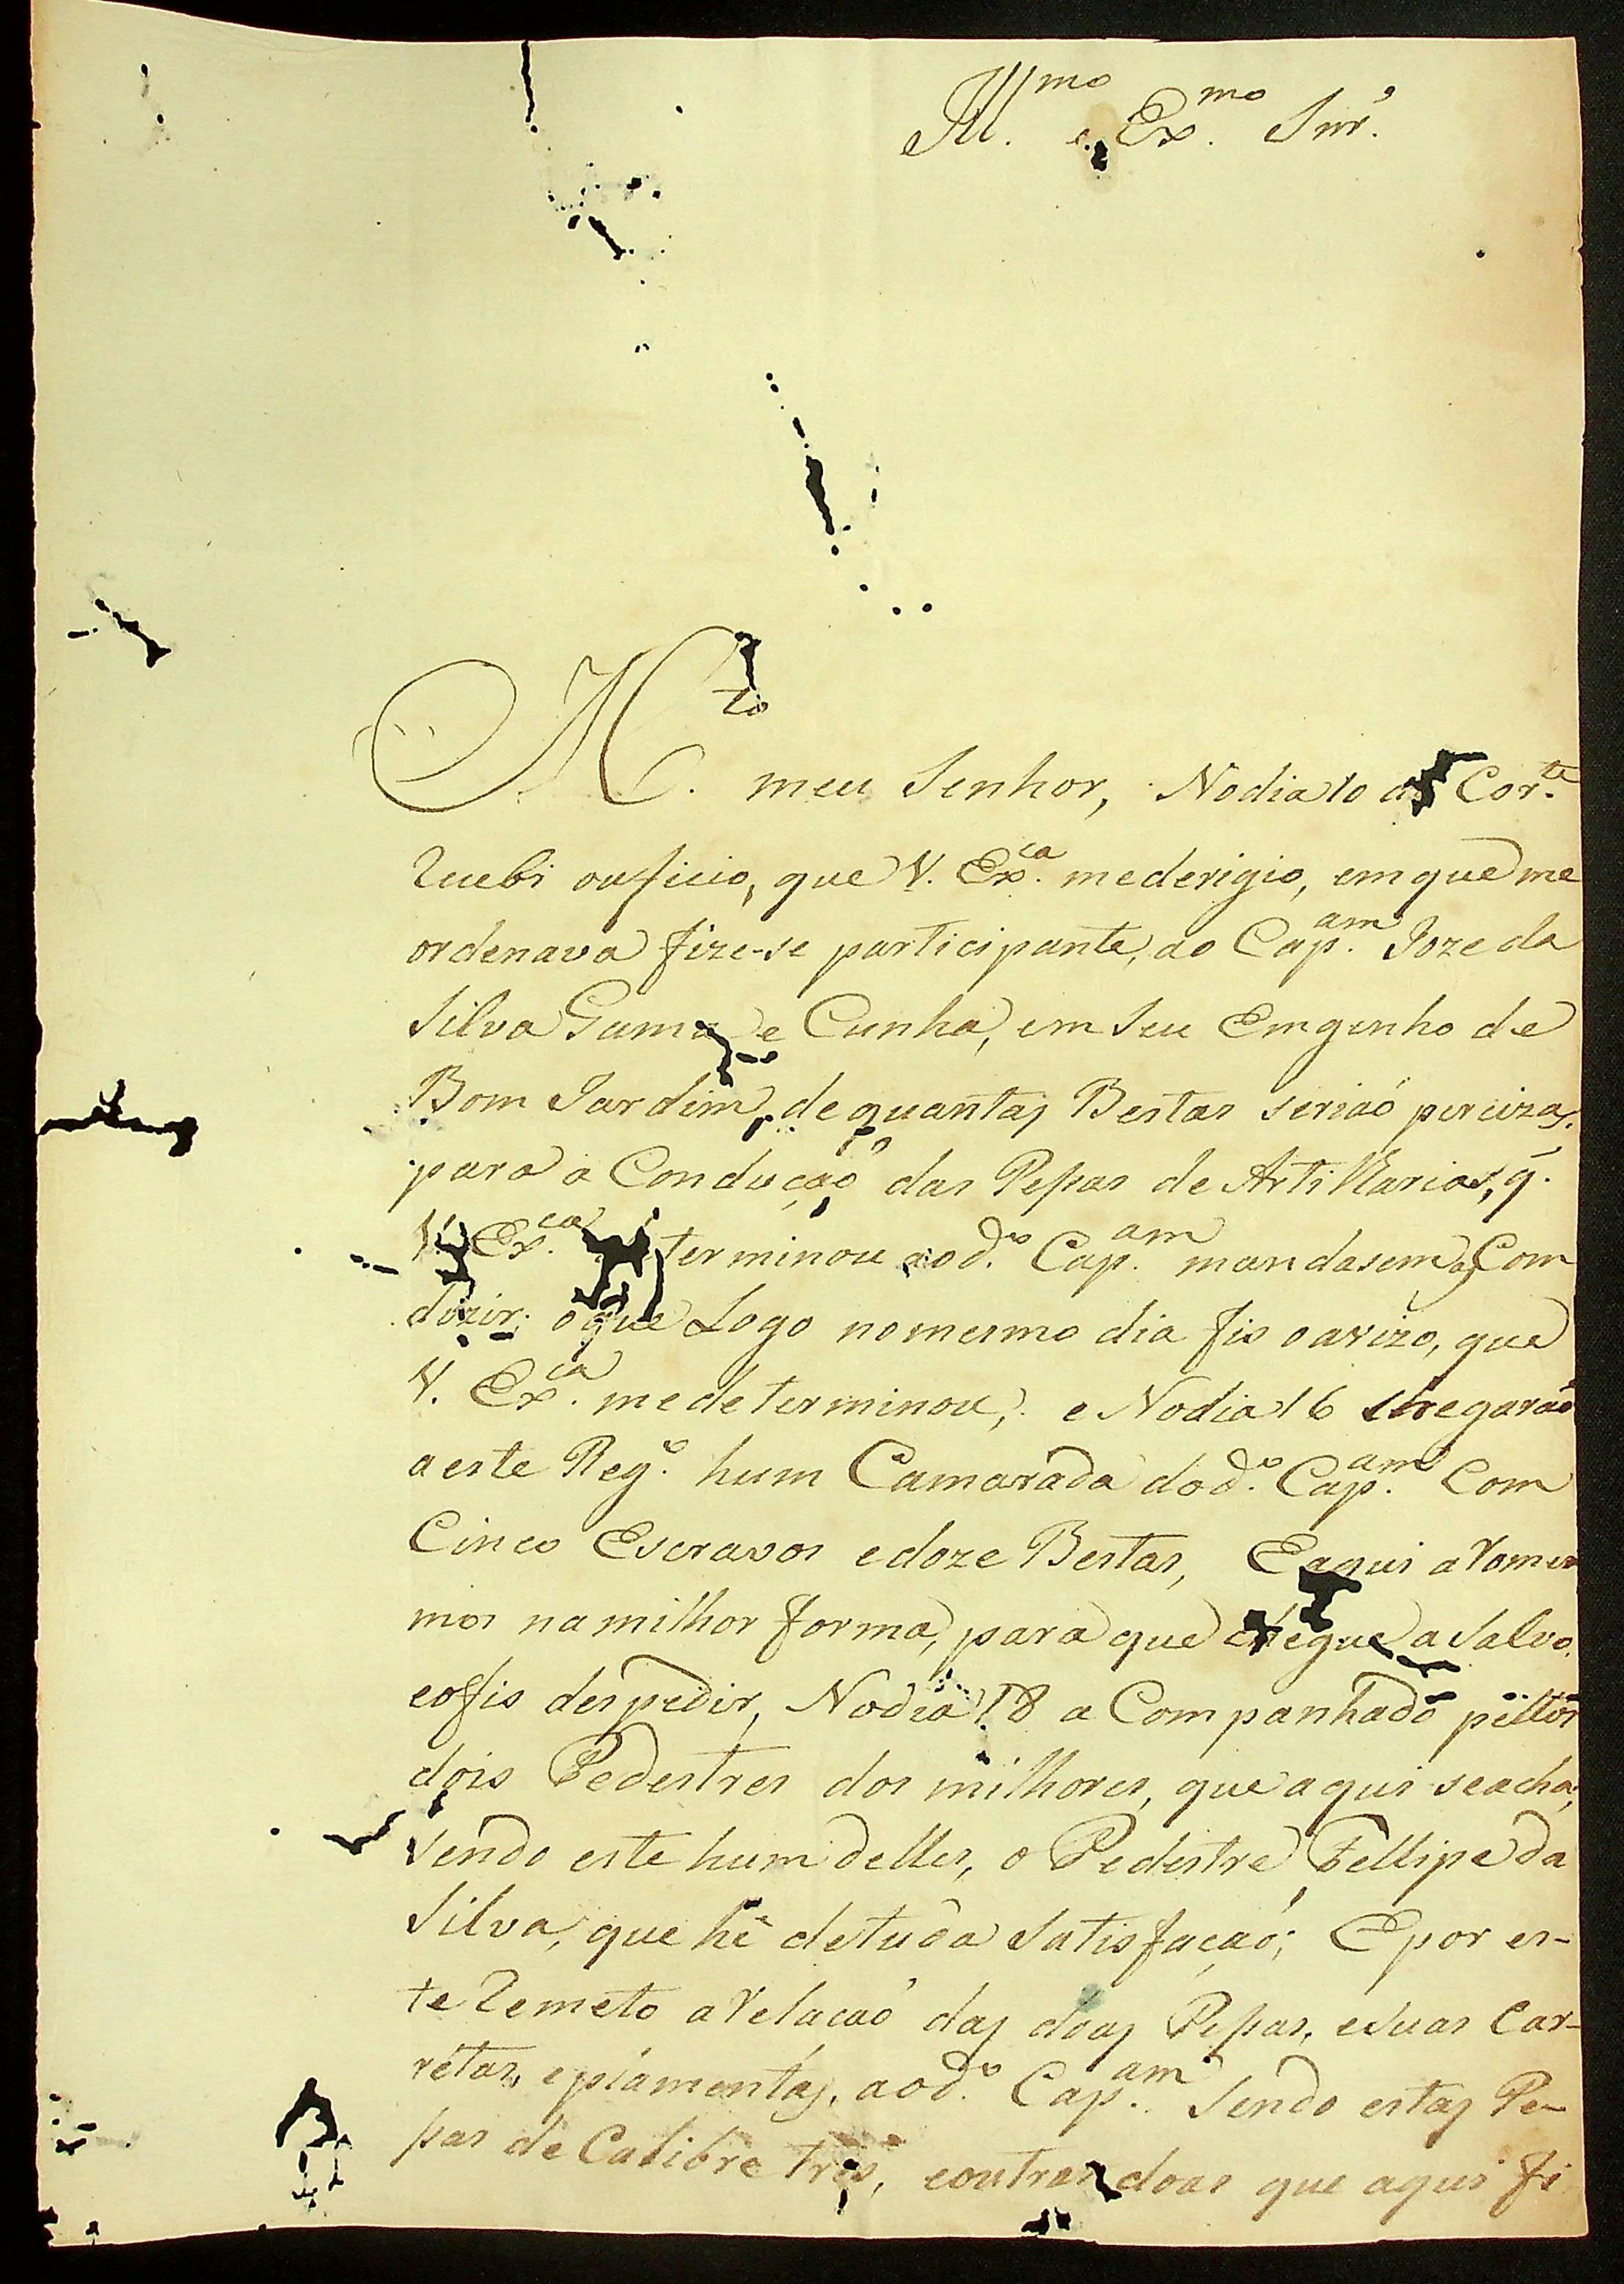 Ill.mo e Ex.mo Snr.'
M.to meu Senhor, No dia 10 do Cor.te
Recebi ouficio, que V. Ex.ca mederigio, emque me
ordenava fize-se participante, ao Cap.am Joze da
Silva Gama e Cunha, em Seu Emgenho de
Bom Jardim, de quantas Bestas serião percizas,
para a Condução das Pessas de Artilharias, q.
V. Ex.ca determinou aod.o Cap.am mandasem as Com
duzir; oque Logo nomesmo dia fis oavizo, que
V. Ex.ca medeterminou, e Nodia 16 chegarão
aeste Reg.o hum Camarada dod.o Cap.am Com
Cinco Escravos edoze Bestas, Eaqui aRomer
mos namilhor forma, para que chegue a Salvo.
eofis despedir, Nodia 18 a Companhado pellos
dois Pedestres dos milhores, que aqui seacha,
sendo este hum delles, o Pedestre Fellipe da
Silva, que hê detuda Satisfação; Epor es-
te Remeto aRelação das doas Pessas, esuas Car-
retas, epiámentas, aod.o Cap.am Sendo estas Pe-
ssas de Calibre tres, eoutras doas que aqui fi